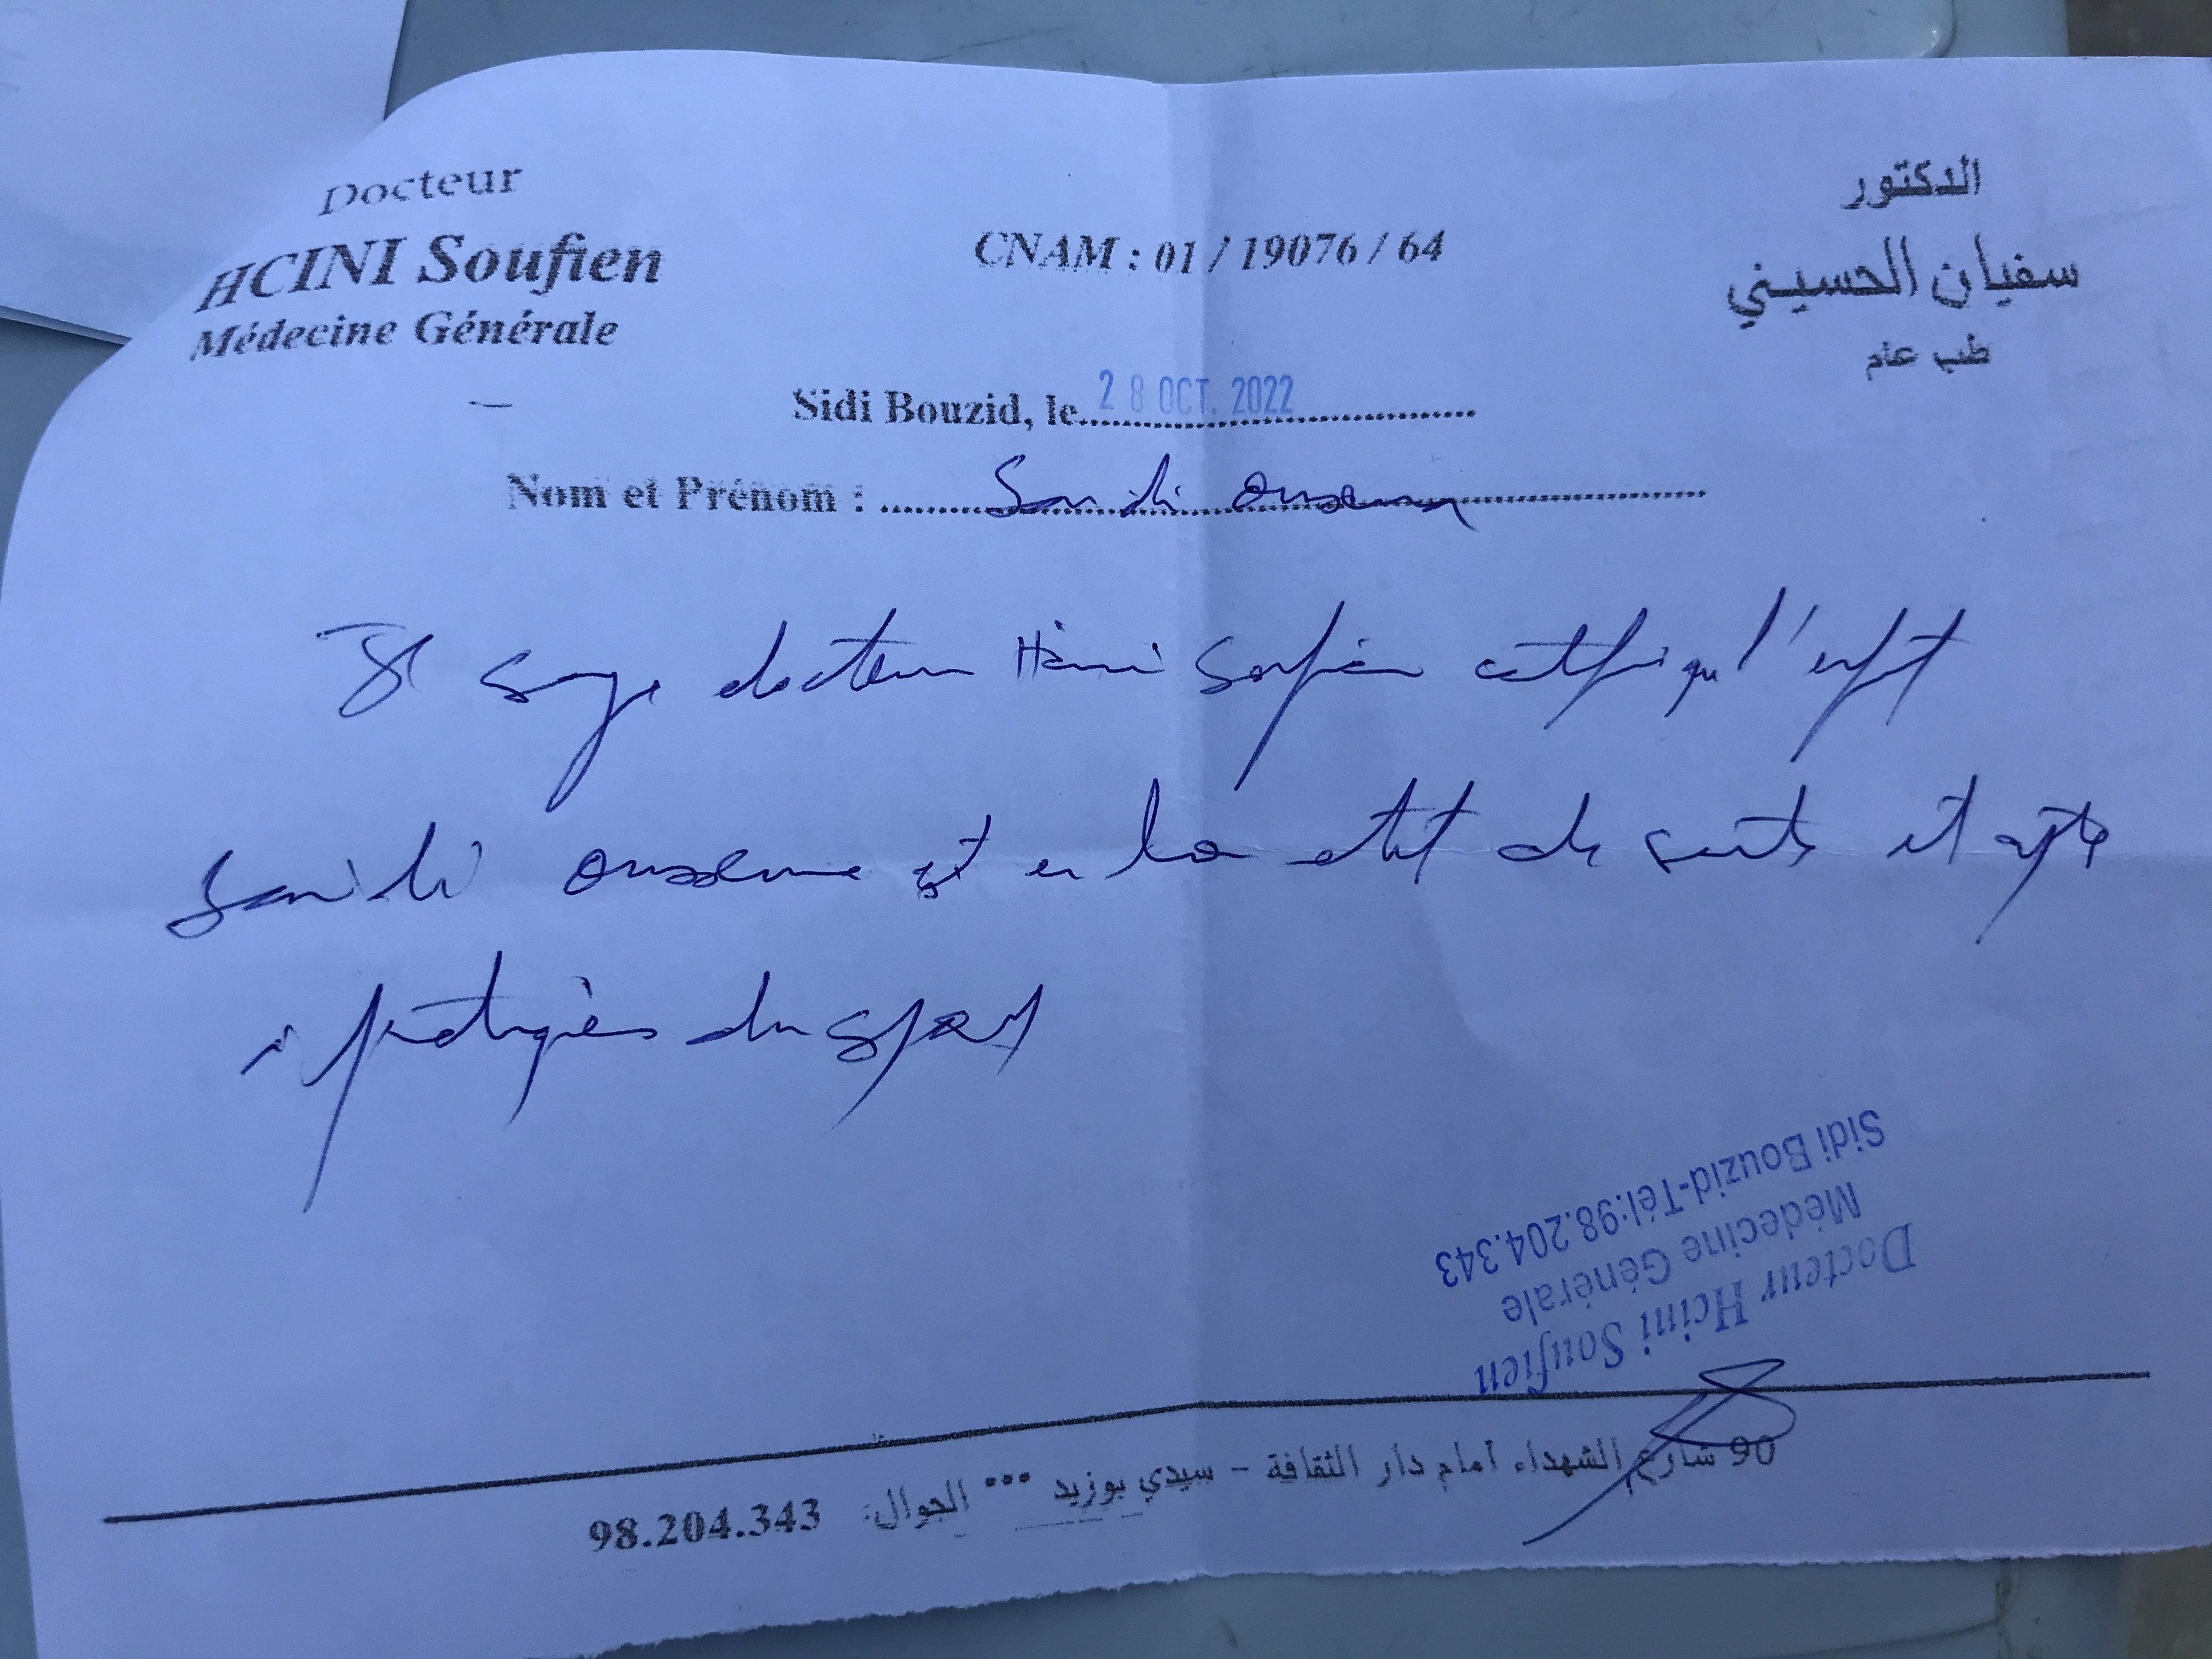 Docteur
HCINI Soufien
Médecine Générale
CNAM : 01 / 19076 / 64
الدكتور
سفيان الحسيني
طب عام
Sidi Bouzid, le 28 OCT. 2022
Nom et Prénom : Saidi Oussema
docteur Hcini Soufien certifie que l'enfant
Saidi Oussema est en bon etat de santé et apte
à pratiquer du sport
Docteur Hcini Soufien
Médecine Générale
Sidi Bouzid-Tél:98.204.343
90 شارع الشهداء أمام دار الثقافة - سيدي بوزيد *** الجوال: 98.204.343